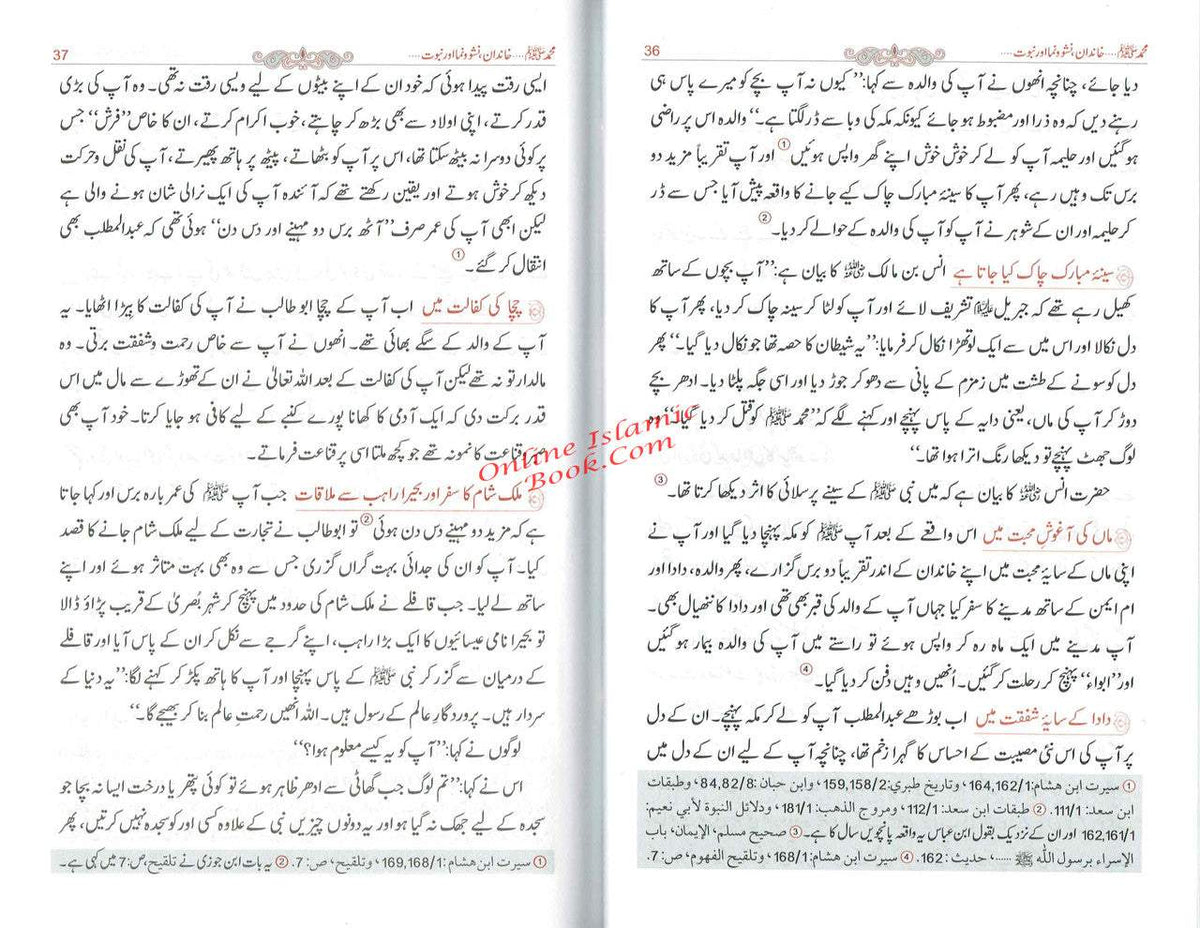 محمد ﷺ .... خاندان، نشوونما اور نبوت .... 36
دیا جائے، چنانچہ انھوں نے آپ کی والدہ سے کہا: ”کیوں نہ آپ بچے کو میرے پاس ہی
رہنے دیں کہ وہ ذرا اور مضبوط ہو جائے کیونکہ مکہ کی وبا سے ڈر لگتا ہے۔“ والدہ اس پر راضی
ہوگئیں اور حلیمہ آپ کو لے کر خوش خوش اپنے گھر واپس ہوئیں① اور آپ تقریباً مزید دو
برس تک وہیں رہے، پھر آپ کا سینۂ مبارک چاک کیے جانے کا واقعہ پیش آیا جس سے ڈر
کر حلیمہ اور ان کے شوہر نے آپ کو آپ کی والدہ کے حوالے کر دیا۔②
سینۂ مبارک چاک کیا جاتا ہے انس بن مالک ﷜ کا بیان ہے: ”آپ بچوں کے ساتھ
کھیل رہے تھے کہ جبریل ﷤ تشریف لائے اور آپ کو لٹا کر سینہ چاک کر دیا، پھر آپ کا
دل نکالا اور اس میں سے ایک لوتھڑا نکال کر فرمایا: ”یہ شیطان کا حصہ تھا جو نکال دیا گیا۔“ پھر
دل کو سونے کے طشت میں زمزم کے پانی سے دھو کر جوڑ دیا اور اسی جگہ پلٹا دیا۔ ادھر بچے
دوڑ کر آپ کی ماں، یعنی دایہ کے پاس پہنچے اور کہنے لگے کہ ”محمد ﷺ کو قتل کر دیا گیا۔“ وہ
لوگ جھٹ پہنچے تو دیکھا رنگ اترا ہوا تھا۔“
حضرت انس ﷜ کا بیان ہے کہ میں نبی ﷺ کے سینے پر سلائی کا اثر دیکھا کرتا تھا۔③
ماں کی آغوشِ محبت میں اس واقعے کے بعد آپ ﷺ کو مکہ پہنچا دیا گیا اور آپ نے
اپنی ماں کے سایۂ محبت میں اپنے خاندان کے اندر تقریباً دو برس گزارے، پھر والدہ، دادا اور
ام ایمن کے ساتھ مدینے کا سفر کیا جہاں آپ کے والد کی قبر بھی تھی اور دادا کا ننھیال بھی۔
آپ مدینے میں ایک ماہ رہ کر واپس ہوئے تو راستے میں آپ کی والدہ بیمار ہو گئیں
اور ”ابواء“ پہنچ کر رحلت کر گئیں۔ اُنھیں وہیں دفن کر دیا گیا۔④
دادا کے سایۂ شفقت میں اب بوڑھے عبدالمطلب آپ کو لے کر مکہ پہنچے۔ ان کے دل
پر آپ کی اس نئی مصیبت کے احساس کا گہرا زخم تھا، چنانچہ آپ کے لیے ان کے دل میں
① سیرت ابن هشام: 164,162/1، وتاریخ طبري: 159,158/2، وابن حبان: 84,82/8، وطبقات
ابن سعد: 111/1. ② طبقات ابن سعد: 112/1، ومروج الذهب: 181/1، ودلائل النبوة لأبي نعيم:
162,161/1 اور ان کے نزدیک بقول ابن عباس یہ واقعہ پانچویں سال کا ہے۔ ③ صحیح مسلم، الإيمان، باب
الإسراء برسول الله ﷺ ......، حدیث: 162. ④ سیرت ابن هشام: 168/1، وتلقیح الفهوم، ص: 7.
محمد ﷺ .... خاندان، نشوونما اور نبوت .... 37
ایسی رقت پیدا ہوئی کہ خود ان کے اپنے بیٹوں کے لیے ویسی رقت نہ تھی۔ وہ آپ کی بڑی
قدر کرتے، اپنی اولاد سے بھی بڑھ کر چاہتے، خوب اکرام کرتے، ان کا خاص ”فرش“ جس
پر کوئی دوسرا نہ بیٹھ سکتا تھا، اس پر آپ کو بٹھاتے، پیٹھ پر ہاتھ پھیرتے، آپ کی نقل وحرکت
دیکھ کر خوش ہوتے اور یقین رکھتے تھے کہ آئندہ آپ کی ایک نرالی شان ہونے والی ہے
لیکن ابھی آپ کی عمر صرف ”آٹھ برس دو مہینے اور دس دن“ ہوئی تھی کہ عبدالمطلب بھی
انتقال کر گئے۔①
چچا کی کفالت میں اب آپ کے چچا ابو طالب نے آپ کی کفالت کا بیڑا اٹھایا۔ یہ
آپ کے والد کے سگے بھائی تھے۔ انھوں نے آپ سے خاص رحمت وشفقت برتی۔ وہ
مالدار تو نہ تھے لیکن آپ کی کفالت کے بعد اللہ تعالیٰ نے ان کے تھوڑے سے مال میں اس
قدر برکت دی کہ ایک آدمی کا کھانا پورے کنبے کے لیے کافی ہو جایا کرتا۔ خود آپ بھی
صبر وقناعت کا نمونہ تھے جو کچھ ملتا اسی پر قناعت فرماتے۔
ملک شام کا سفر اور بحیرا راہب سے ملاقات جب آپ ﷺ کی عمر بارہ برس اور کہا جاتا
ہے کہ مزید دو مہینے دس دن ہوئی② تو ابو طالب نے تجارت کے لیے ملک شام جانے کا قصد
کیا۔ آپ کو ان کی جدائی بہت گراں گزری جس سے وہ بھی بہت متاثر ہوئے اور آپ کو
ساتھ لے لیا۔ جب قافلے نے ملک شام کی حدود میں پہنچ کر شہر بُصریٰ کے قریب پڑاؤ ڈالا
تو بحیرا نامی عیسائیوں کا ایک بڑا راہب، اپنے گرجے سے نکل کر ان کے پاس آیا اور قافلے
کے درمیان سے گزر کر نبی ﷺ کے پاس پہنچا اور آپ کا ہاتھ پکڑ کر کہنے لگا: ”یہ دنیا کے
سردار ہیں۔ پروردگارِ عالم کے رسول ہیں۔ اللہ انھیں رحمتِ عالم بنا کر بھیجے گا۔“
لوگوں نے کہا: ”آپ کو یہ کیسے معلوم ہوا؟“
اس نے کہا: ”تم لوگ جب گھاٹی سے ادھر ظاہر ہوئے تو کوئی پتھر یا درخت ایسا نہ بچا جو
سجدہ کے لیے جھک نہ گیا ہو اور یہ دونوں چیزیں نبی کے علاوہ کسی اور کو سجدہ نہیں کرتیں، پھر
① سیرت ابن هشام: 169,168/1، وتلقیح، ص: 7. ② یہ بات ابن جوزی نے تلقیح، ص: 7 میں کہی ہے۔
Online Islamic
Book.Com